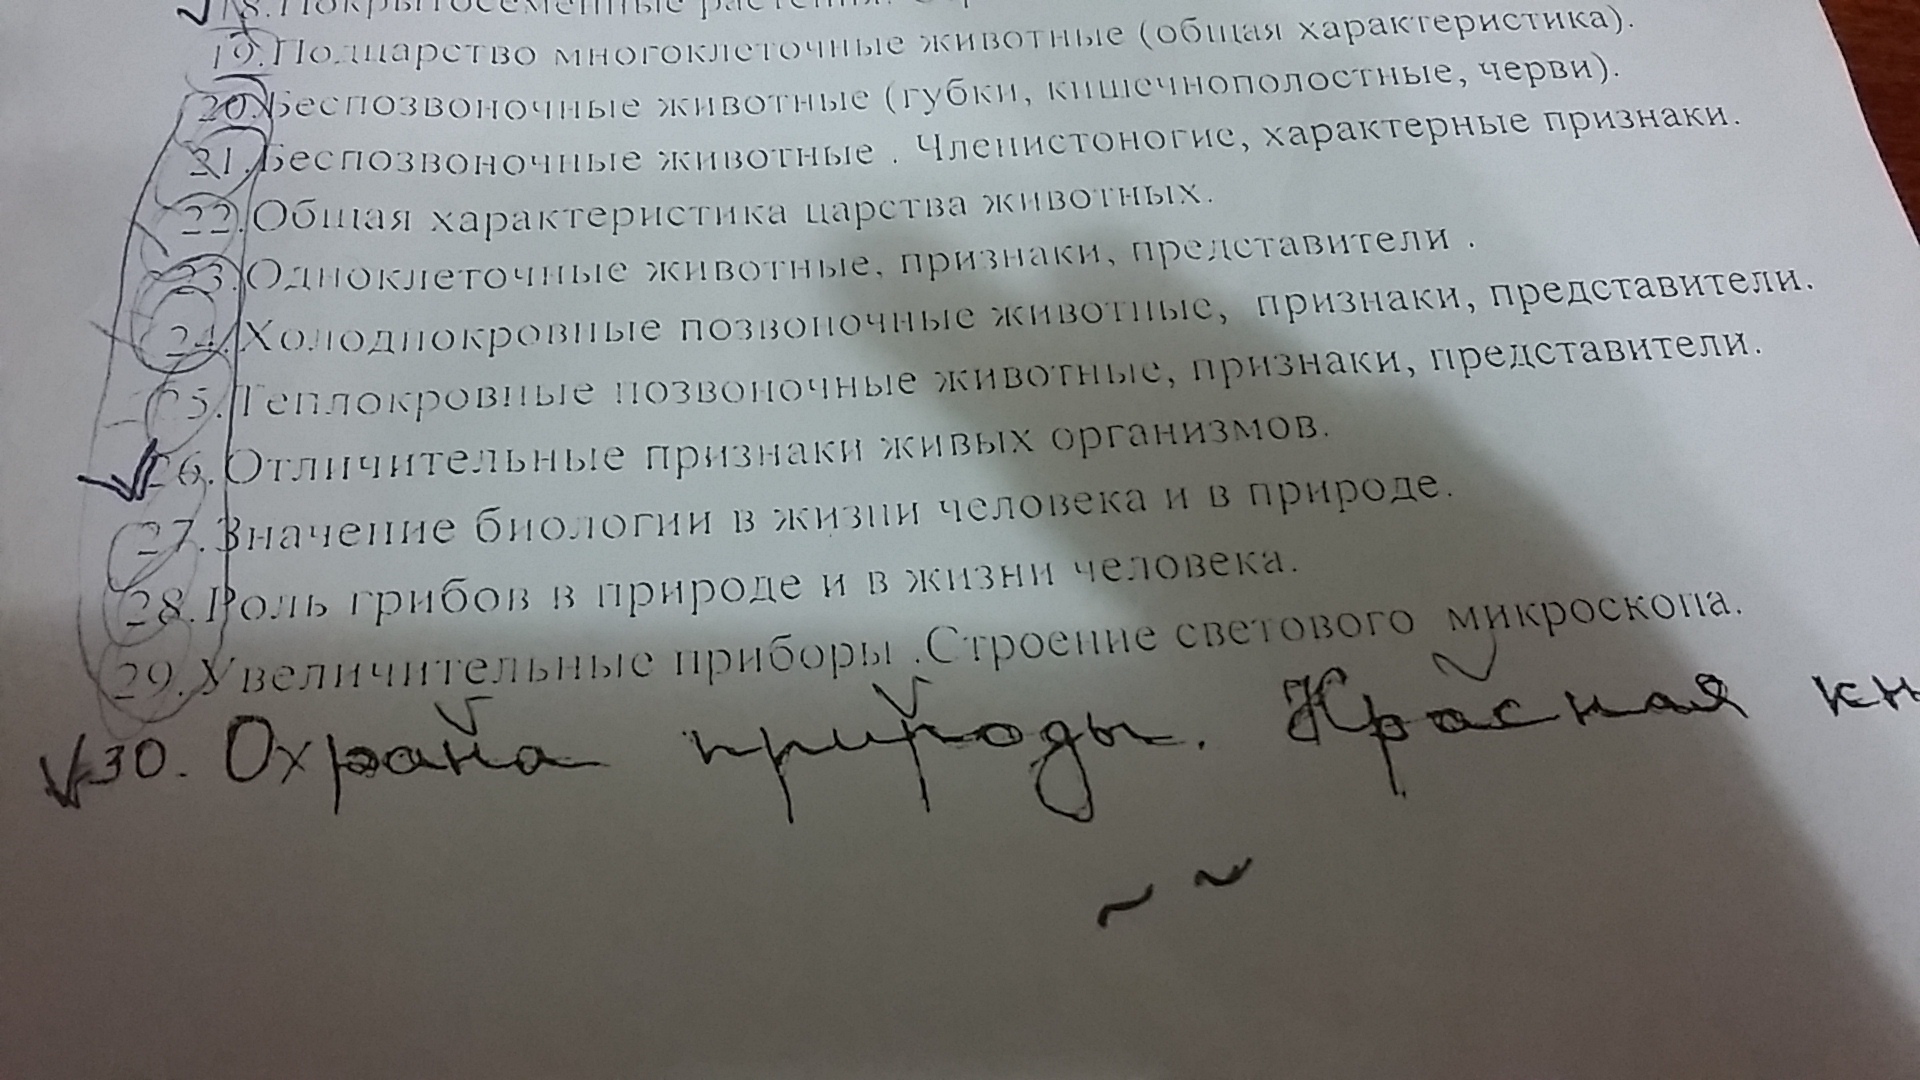 18.Покрытосеменные растения.
19.Подцарство многоклеточные животные (общая характеристика).
20.Беспозвоночные животные (губки, кишечнополостные, черви).
21.Беспозвоночные животные . Членистоногие, характерные признаки.
22.Общая характеристика царства животных.
23.Одноклеточные животные, признаки, представители .
24.Холоднокровные позвоночные животные, признаки, представители.
25.Теплокровные позвоночные животные, признаки, представители.
26.Отличительные признаки живых организмов.
27.Значение биологии в жизни человека и в природе.
28.Роль грибов в природе и в жизни человека.
29.Увеличительные приборы .Строение светового микроскопа.
30. Охрана природы. Красная кн